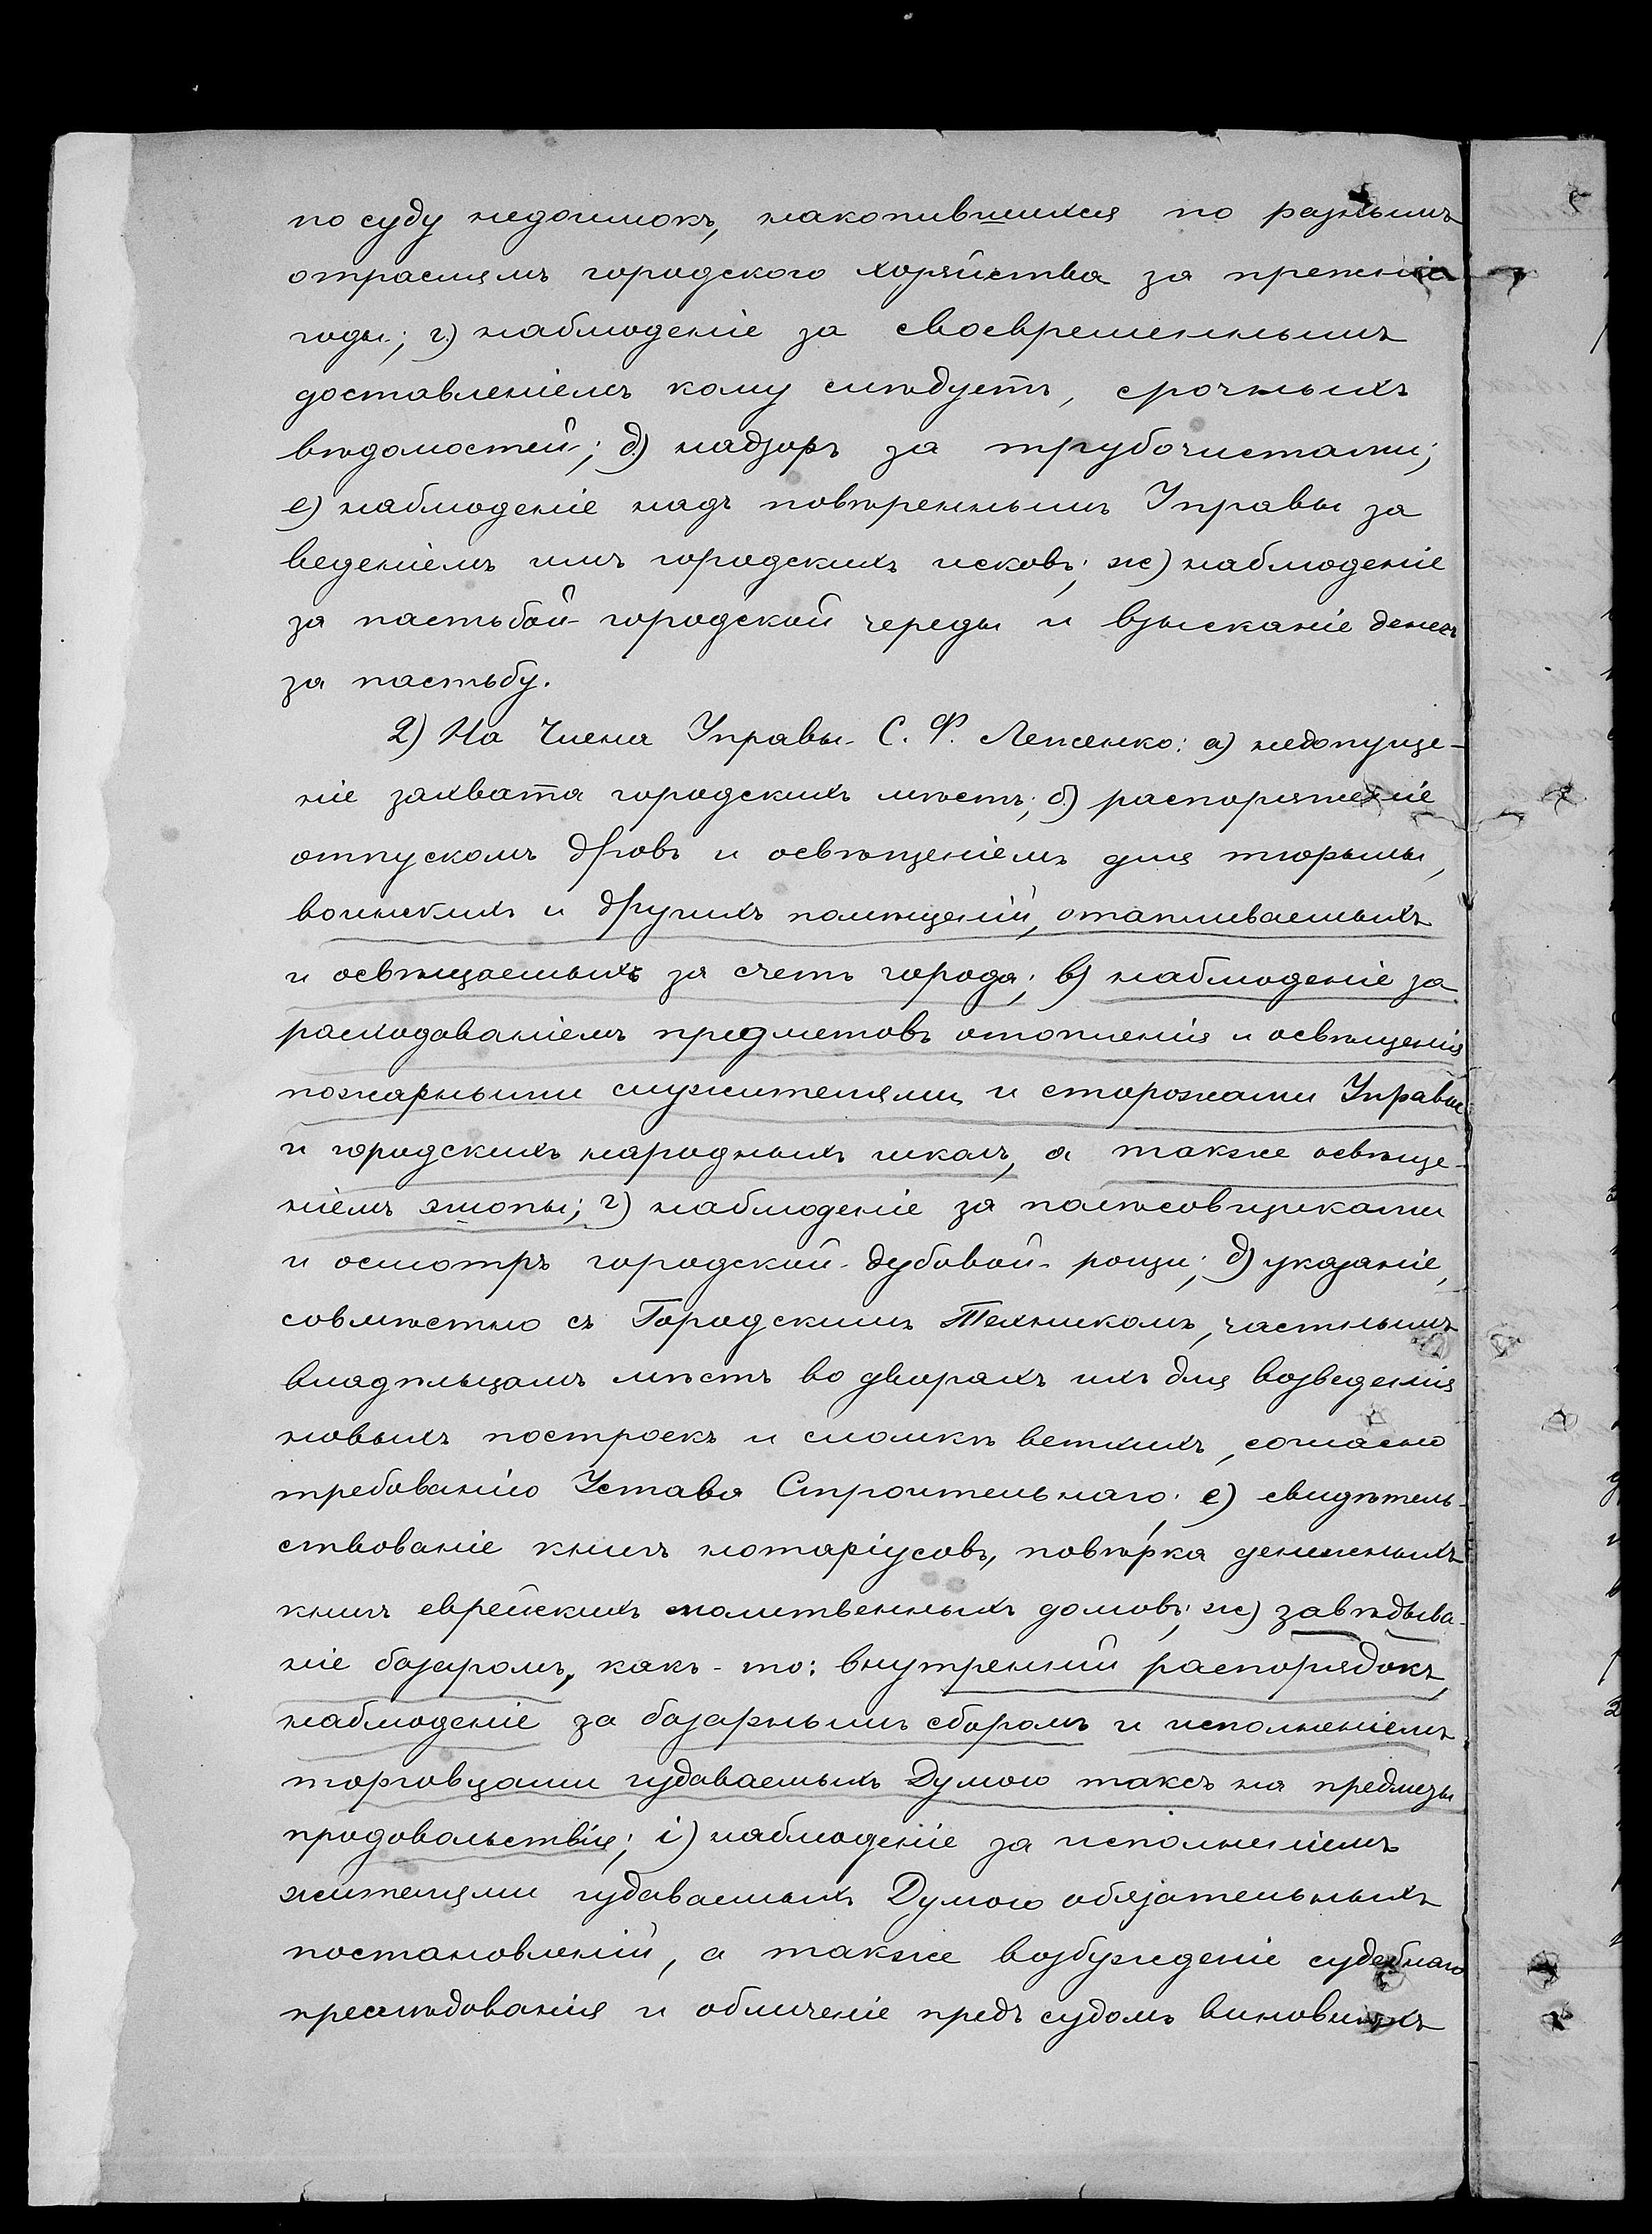 по суду недоимокъ, накопившихся по разнымъ
отраслямъ городского хозяйства за прежніе
годы; г) наблюденіе за своевременнымъ
доставленіемъ кому слѣдуетъ, срочныхъ
вѣдомостей; д) надзоръ за трубочистами;
е) наблюденіе надъ повѣреннымъ Управы за
веденіемъ имъ городскихъ исковъ; ж) наблюденіе
за пастьбой городской череды и взысканіе денегъ
за пастьбу.
2) На Члена Управы С. Ф. Лепсенко: а) недопуще-
ніе захвата городскихъ мѣстъ; б) распоряженіе
отпускомъ дровъ и освѣщеніемъ для тюрьмы,
воинскихъ и другихъ помѣщеній, отапливаемыхъ
и освѣщаемыхъ за счетъ города; в) наблюденіе за
расходованіемъ предметовъ отопленія и освѣщенія
пожарными служителями и сторожами Управы
и городскихъ народныхъ школъ, а также освѣще-
ніемъ эшопы; г) наблюденіе за полѣсовщиками
и осмотръ городской дубовой рощи; д) указаніе,
совмѣстно съ Городскимъ Техникомъ, частнымъ
владѣльцамъ мѣстъ во дворахъ ихъ для возведенія
новыхъ построекъ и сломкѣ ветхихъ, согласно
требованію Устава Строительнаго; е) свидѣтель-
ствованіе книгъ нотаріусовъ, повѣрка денежныхъ
книгъ еврейскихъ молитвенныхъ домовъ; ж) завѣдыва-
ніе базаромъ, какъ-то: внутренній распорядокъ,
наблюденіе за базарнымъ сборомъ и исполненіемъ
торговцами издаваемыхъ Думою таксъ на предметы
продовольствія; і) наблюденіе за исполненіемъ
жителями издаваемыхъ Думою обязательныхъ
постановленій, а также возбужденіе судебнаго
преслѣдованія и обличеніе предъ судомъ виновныхъ